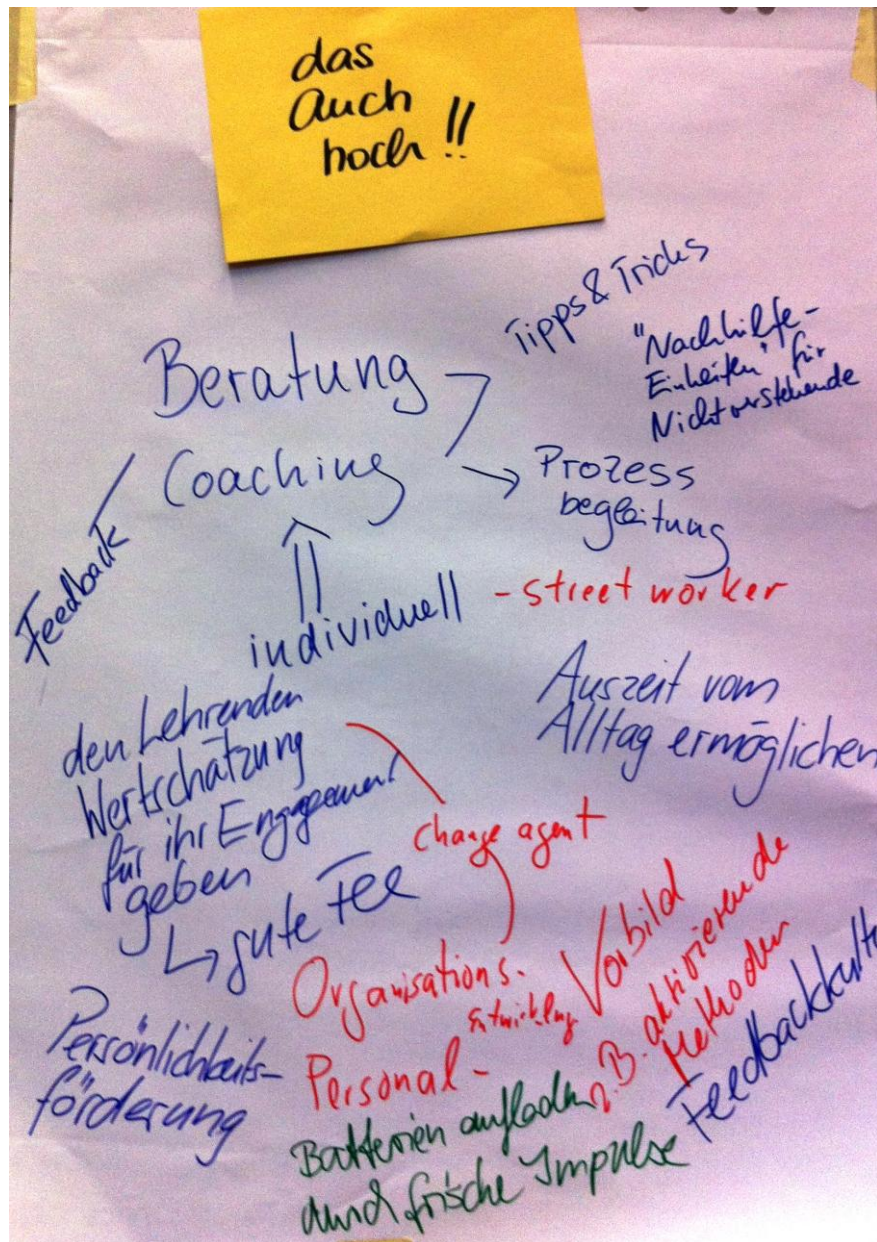 das
auch
hoch!!
Tipps & Tricks
"Nachhilfe-
Einheiten" für
Nichtverstehende
Beratung
Coaching
Prozess
begleitung
Feedback
individuell
- street worker
Auszeit vom
Alltag ermöglichen
den Lehrenden
Wertschätzung
für ihr Engagement
geben
gute Fee
change agent
Organisations-
Entwicklung
Personal-
Vorbild
z.B. aktivierende
Methoden
Feedbackkultu
Persönlichkeits-
förderung
Batterien aufladen
durch frische Impulse